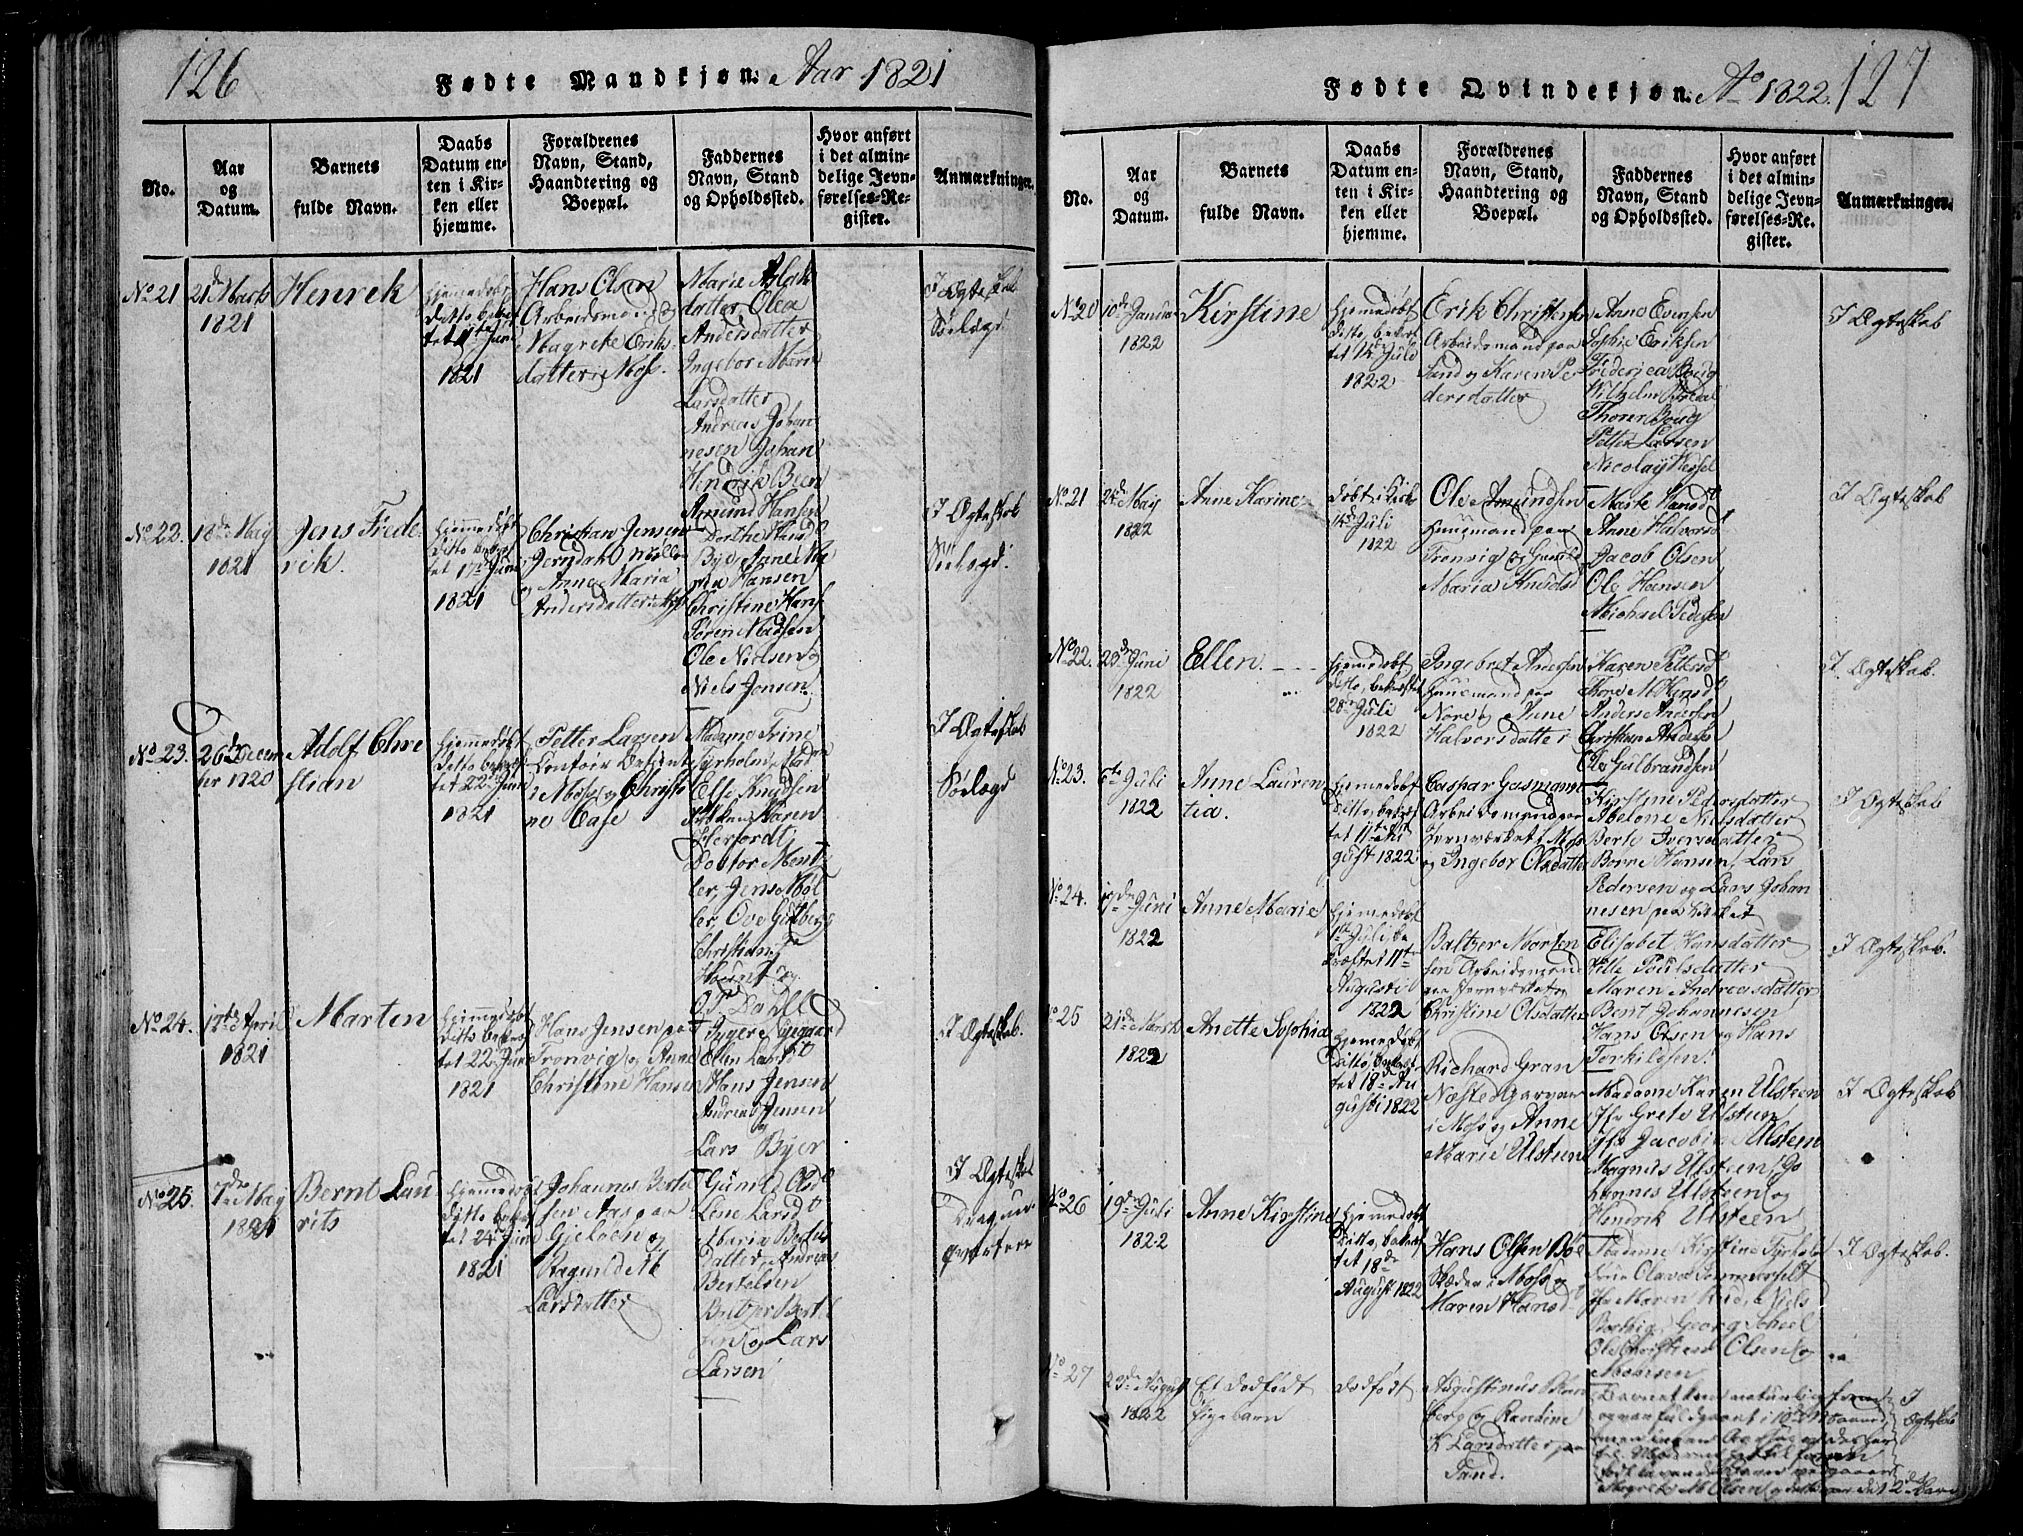 126
Fødte Mandkjøn. Aar 1821
No.
Aar
og
Datum.
Barnets
fulde Navn.
Daabs
Datum en-
ten i Kir-
ken eller
hjemme.
Forældrenes
Navn, Stand,
Haandtering og
Boepæl.
Faddernes
Navn, Stand
og Opholdssted.
Hvor anført
i det almin-
delige Jevn-
førelses-Re-
gister.
Anmærkninger.
No 21
21de Marts
1821
Henrik
Hjemmedøbt
Ditto bekræf
tet 17de Juni
1821
Hans Olsen
Arbeidsmand og
Magrete Erik-
datter i Moss.
Marie Aslak
datter Olea
Andersdatter
Ingebor Marie
Larsdatter
Andreas Johan
nesen Johan
Hendrik Been
Amund Hansen
I Ægteskab
Søelægd
No 22.
18de Maij
1821
Jens Frede
rik.
Hjemmedøbt
Ditto bekræf
tet 17de Juni
1821
Christian Jensen
og Anne Maria
Andersdatter i Moss
Dorthe
Byer Anne Ma
ria Hansen
Christine Hans
Søren Madsen
Ole Nielsen og
Niels Jensen.
I Ægteskab
Søelægd:
No 23.
26de Decem
ber 1820
Adolf Chri
stian
Hjemmedøbt
Ditto bekræf
tet 22de Juni
1821
Petter Larsen
i Moss og Christi
ne Case
Madame Trine
Tyrholm, Madam
Else Knudsen
Karen
Herfordt
Doctor Ment
ler, Jens Møl
ler, Ove Guldberg
Christian
Hount og
O. P. Dahll
I Ægteskab
Søelægd
No 24.
17de April
1821
Marten
Hjemmedøbt
Ditto bekræf
tet 22de Juni
1821
Hans Jensen paa
Tronvig og Anne
Christine Hansen
Birgere
Ellen Larsd
Hans Jensen
Andreas Jensen
og
Lars Byer
I Ægteskab.
No 25.
7de Maij
1821
Bernt Lau
rits
Hjemmedøbt
Ditto bekræf
tet 24de Juni
1821
Johannes Bertel
sen Aas paa
Gjeløen og
Ragnild
Larsdatter
Gunild Olsd
Lene Larsd
Maria Bertels
Datter, Andreas
Bertelsen
Baltzer Bertel
sen og Lars
Larsen
I Ægteskab
Dragoun
qvarteer
Fødte Qvindekjøn. Ao 1822.
127
No.
Aar
og
Datum.
Barnets
fulde Navn.
Daabs
Datum en-
ten i Kir-
ken eller
hjemme.
Forældrenes
Navn, Stand,
Haandtering og
Boepæl.
Faddernes
Navn, Stand
og Opholdssted.
Hvor anført
i det almin-
delige Jevn-
førelses-Re-
gister.
Anmærkninger.
No 20
10de Januar
1822
Kirstine
Hjemmedøbt
Ditto, bekræf
tet 14de Juli
1822
Erik Christensen
Arbeidsmand paa
Sand og Karen Pe
dersdatter
Anne Evensen
Sophie Eriksen
Frederica Boug
Wilhelm
Thoner Boug
Petter Larsen
Nicolaij Hessel
I Ægteskab
No 21
24de Maij
1822
Anne Karine
Døbt i Kirke
14de Juli
1822
Ole Amundsen
Huusmand paa
Tronvig og Gunild
Maria Knudsd
Marte Hansd
Anne Halvorsd
Jacob Olsen
Ole Hansen
Michael Pedersen
I Ægteskab
No 22.
20de Juni
1822
Ellen.
Hjemmedøbt
Ditto, bekræftet
28de Juli
1822
Ingebret Andersen
Huusmand paa
Nore og Anne
Halvorsdatter
Karen Pettersd
Anders Andersen
Christian Anders
Ole Gulbrandsen
I Ægteskab.
No 23.
6te Juli
1822
Anne Lauren
tia.
Hjemmedøbt
Ditto, bekræf
tet 11te Au
gust 1822
Caspar Gasmann
Arbeidsmand paa
Jernværket i Moss
og Ingebor Olsdatter
Kirstine Pedersdatter
Abelone Nielsdatter
Berte Iversdatter
Børre Hansen, Lars
Pedersen og Lars Johan
nesen paa Værket
I Ægteskab
No 24.
17de Juni
1822
Anne Marie
Hjemmedøbt
1ste Juli be
kræftet 11te
Augusti
1822
Baltzer Morten
sen Arbeidsmand
paa Jernværket og
Christine Olsdatter
Elisabet Hansdatter
Sille Poulsdatter
Maren Andreasdatter
Bent Johannesen
Hans Olsen og Hans
Torkilsen
I Ægteskab.
No 25
21de Marts
1822
Anette Sophia
Hjemmedøbt
Ditto, bekræf
tet 18de Au
gusti 1822
Richard Gran
Næste Garver
i Moss og Anne
Marie Ulsteen
Madame Karen Ulsteen
Jfr Grete Ulsteen
Jfr Jacobia Ulsteen
Magnus Ulsteen, Jo
hannes Ulsteen og
Hendrik Ulsteen
I Ægteskab
No 26
19de Juli
1822
Anne Kirstine
Hjemmedøbt
Ditto, bekræf
tet 18de
August 1822
Hans Olsen Bøe
Skræder i Moss og
Maren Hansd
Madame Kirstine Tyrholm
Frue Olava Sommerfeldt
Jfr Maren Rud, Niels
Bochig, Georg Scheel
Ole Christian Olsen og
Monsen
I Ægteskab.
No 27
23de August
1822
Et dødfødt
Pigebarn
dødfødt
Augustinus Ban
berg og Randine
K. Larsdatter paa
Sand.
I
Ægteskab